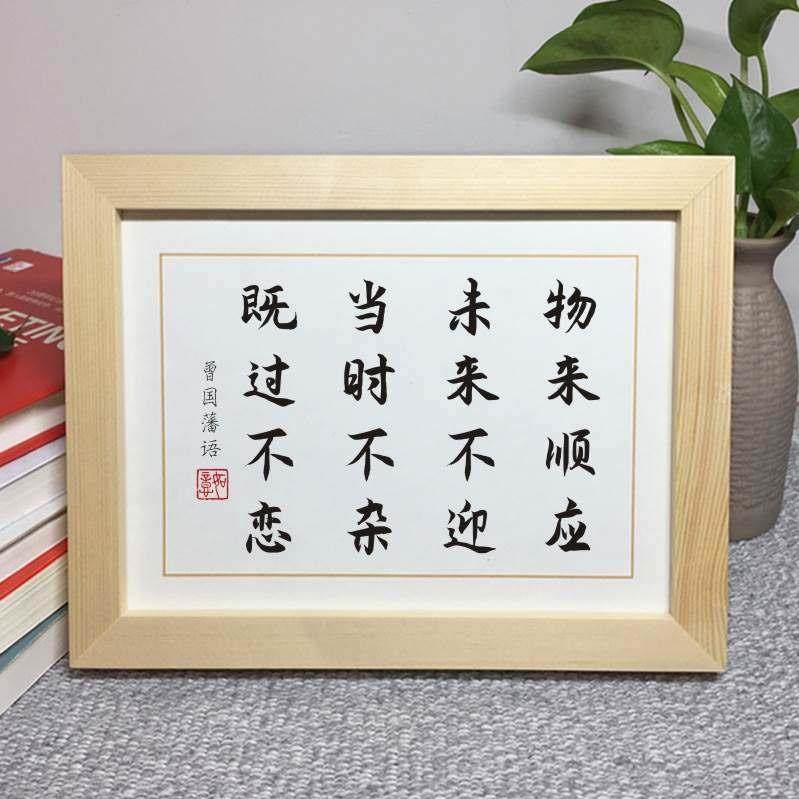 物来顺应
未来不迎
当时不杂
既过不恋
曾国藩语